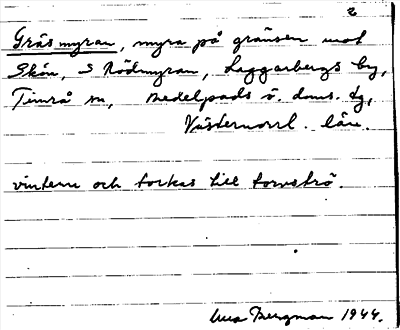 2
Gräsmyran, myra på gränsen mot
Skön, S Rödmyran, Laggarbergs by,
Timrå sn, Medelpads ö. doms. dg,
Västernorrl. län.
vintern och torkas till torvströ.
Bergman 1944.